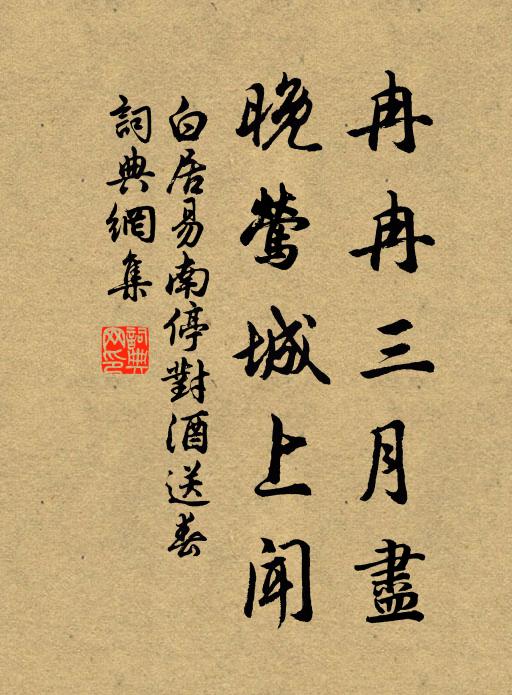 冉冉三月盡
晚鶯城上聞
白居易南停對酒送春
詞典網集
詞典网印